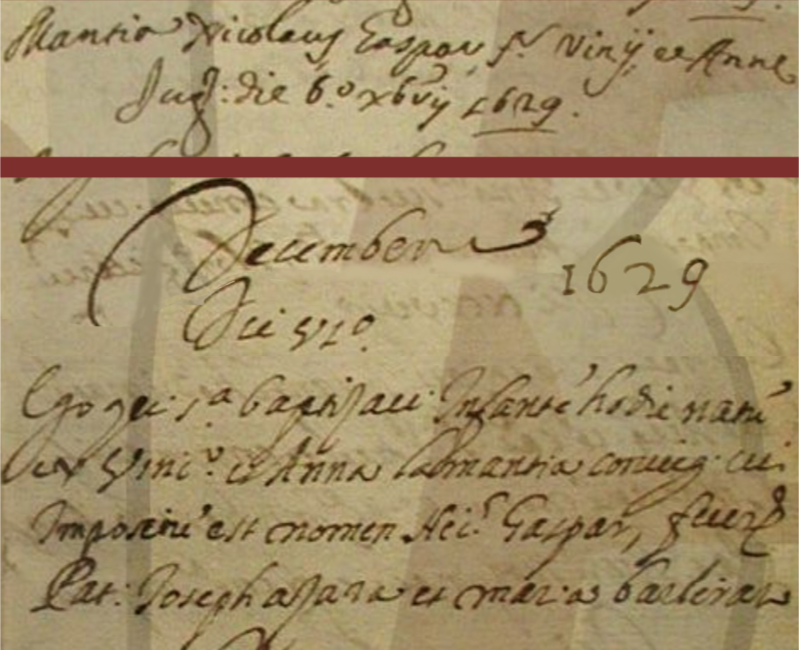 Mantia Nicolaus Gaspar f. Vinij et Anne
Jug: die 6.º xbrij 1629.
December 1629
Die VIº
Ego qui sª baptizavi Infanté hodie natú
ex Vincº et Anna Lamantia coniug: cui
Impositú est nomen Nic. Gaspar, fuerú
Pat: Joseph et maria